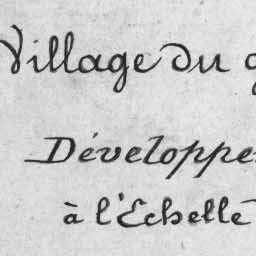 Village du g
Développe
à l'Echelle